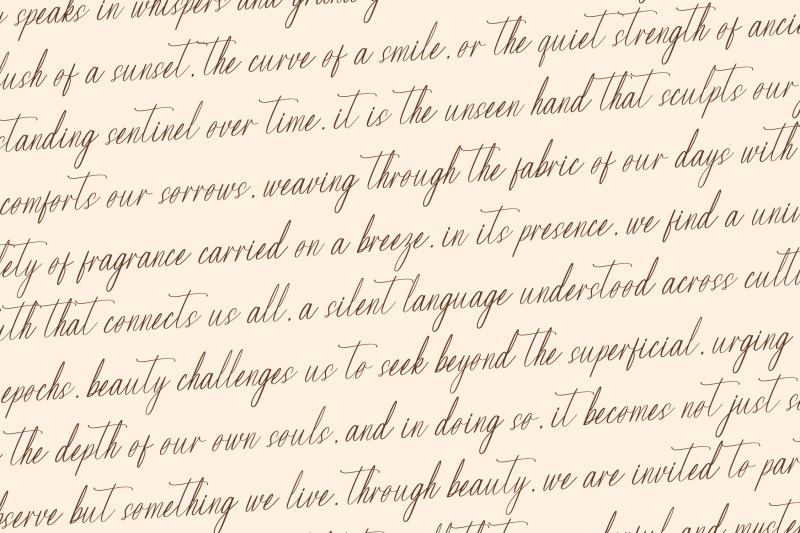 speaks in whispers and
of a sunset. the curve of a smile. or the quiet strength of
standing sentinel over time. it is the unseen hand that sculpts our
comforts our sorrows. weaving through the fabric of our days with
of fragrance carried on a breeze. in its presence. we find a
that connects us all. a silent language understood across
epochs. beauty challenges us to seek beyond the superficial. urging
the depth of our own souls. and in doing so. it becomes not just
but something we live. through beauty. we are invited to
and